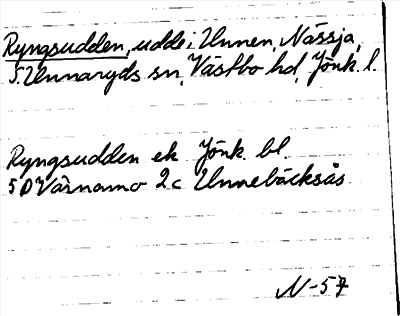 Ryngsudden, udde i Unnen, Nässja,
S. Unnaryds sn, Västbo hd, Jönk. l.
Ryngsudden ek Jönk. bl.
5D Värnamo 2c Unnebäcksås
N-57